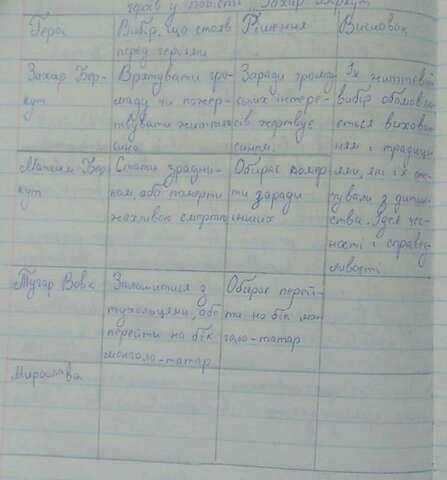 героїв у повісті "Захар Беркут"
Герої
Вибір, що стояв
перед героями
Рішення
Висновок
Захар Бер-
кут
Врятувати гро-
маду чи пожер-
твувати життям
сина
Заради громад-
ських інтере-
сів жертвує
сином.
Їх життєвий
вибір обумовлю-
ється вихован-
ням і традиці-
ями, які їх ото-
чували з дитин-
ства. Ідея чес-
ності і справед-
ливості
Максим Бер-
кут
Стати зрадни-
ком, або померти
жахливою смертю
Обирає помер-
ти заради
інших
Тугар Вовк
Залишитися з
тухольцями, або
перейти на бік
монголо-татар
Обирає перей-
ти на бік мон-
голо-татар
Мирослава